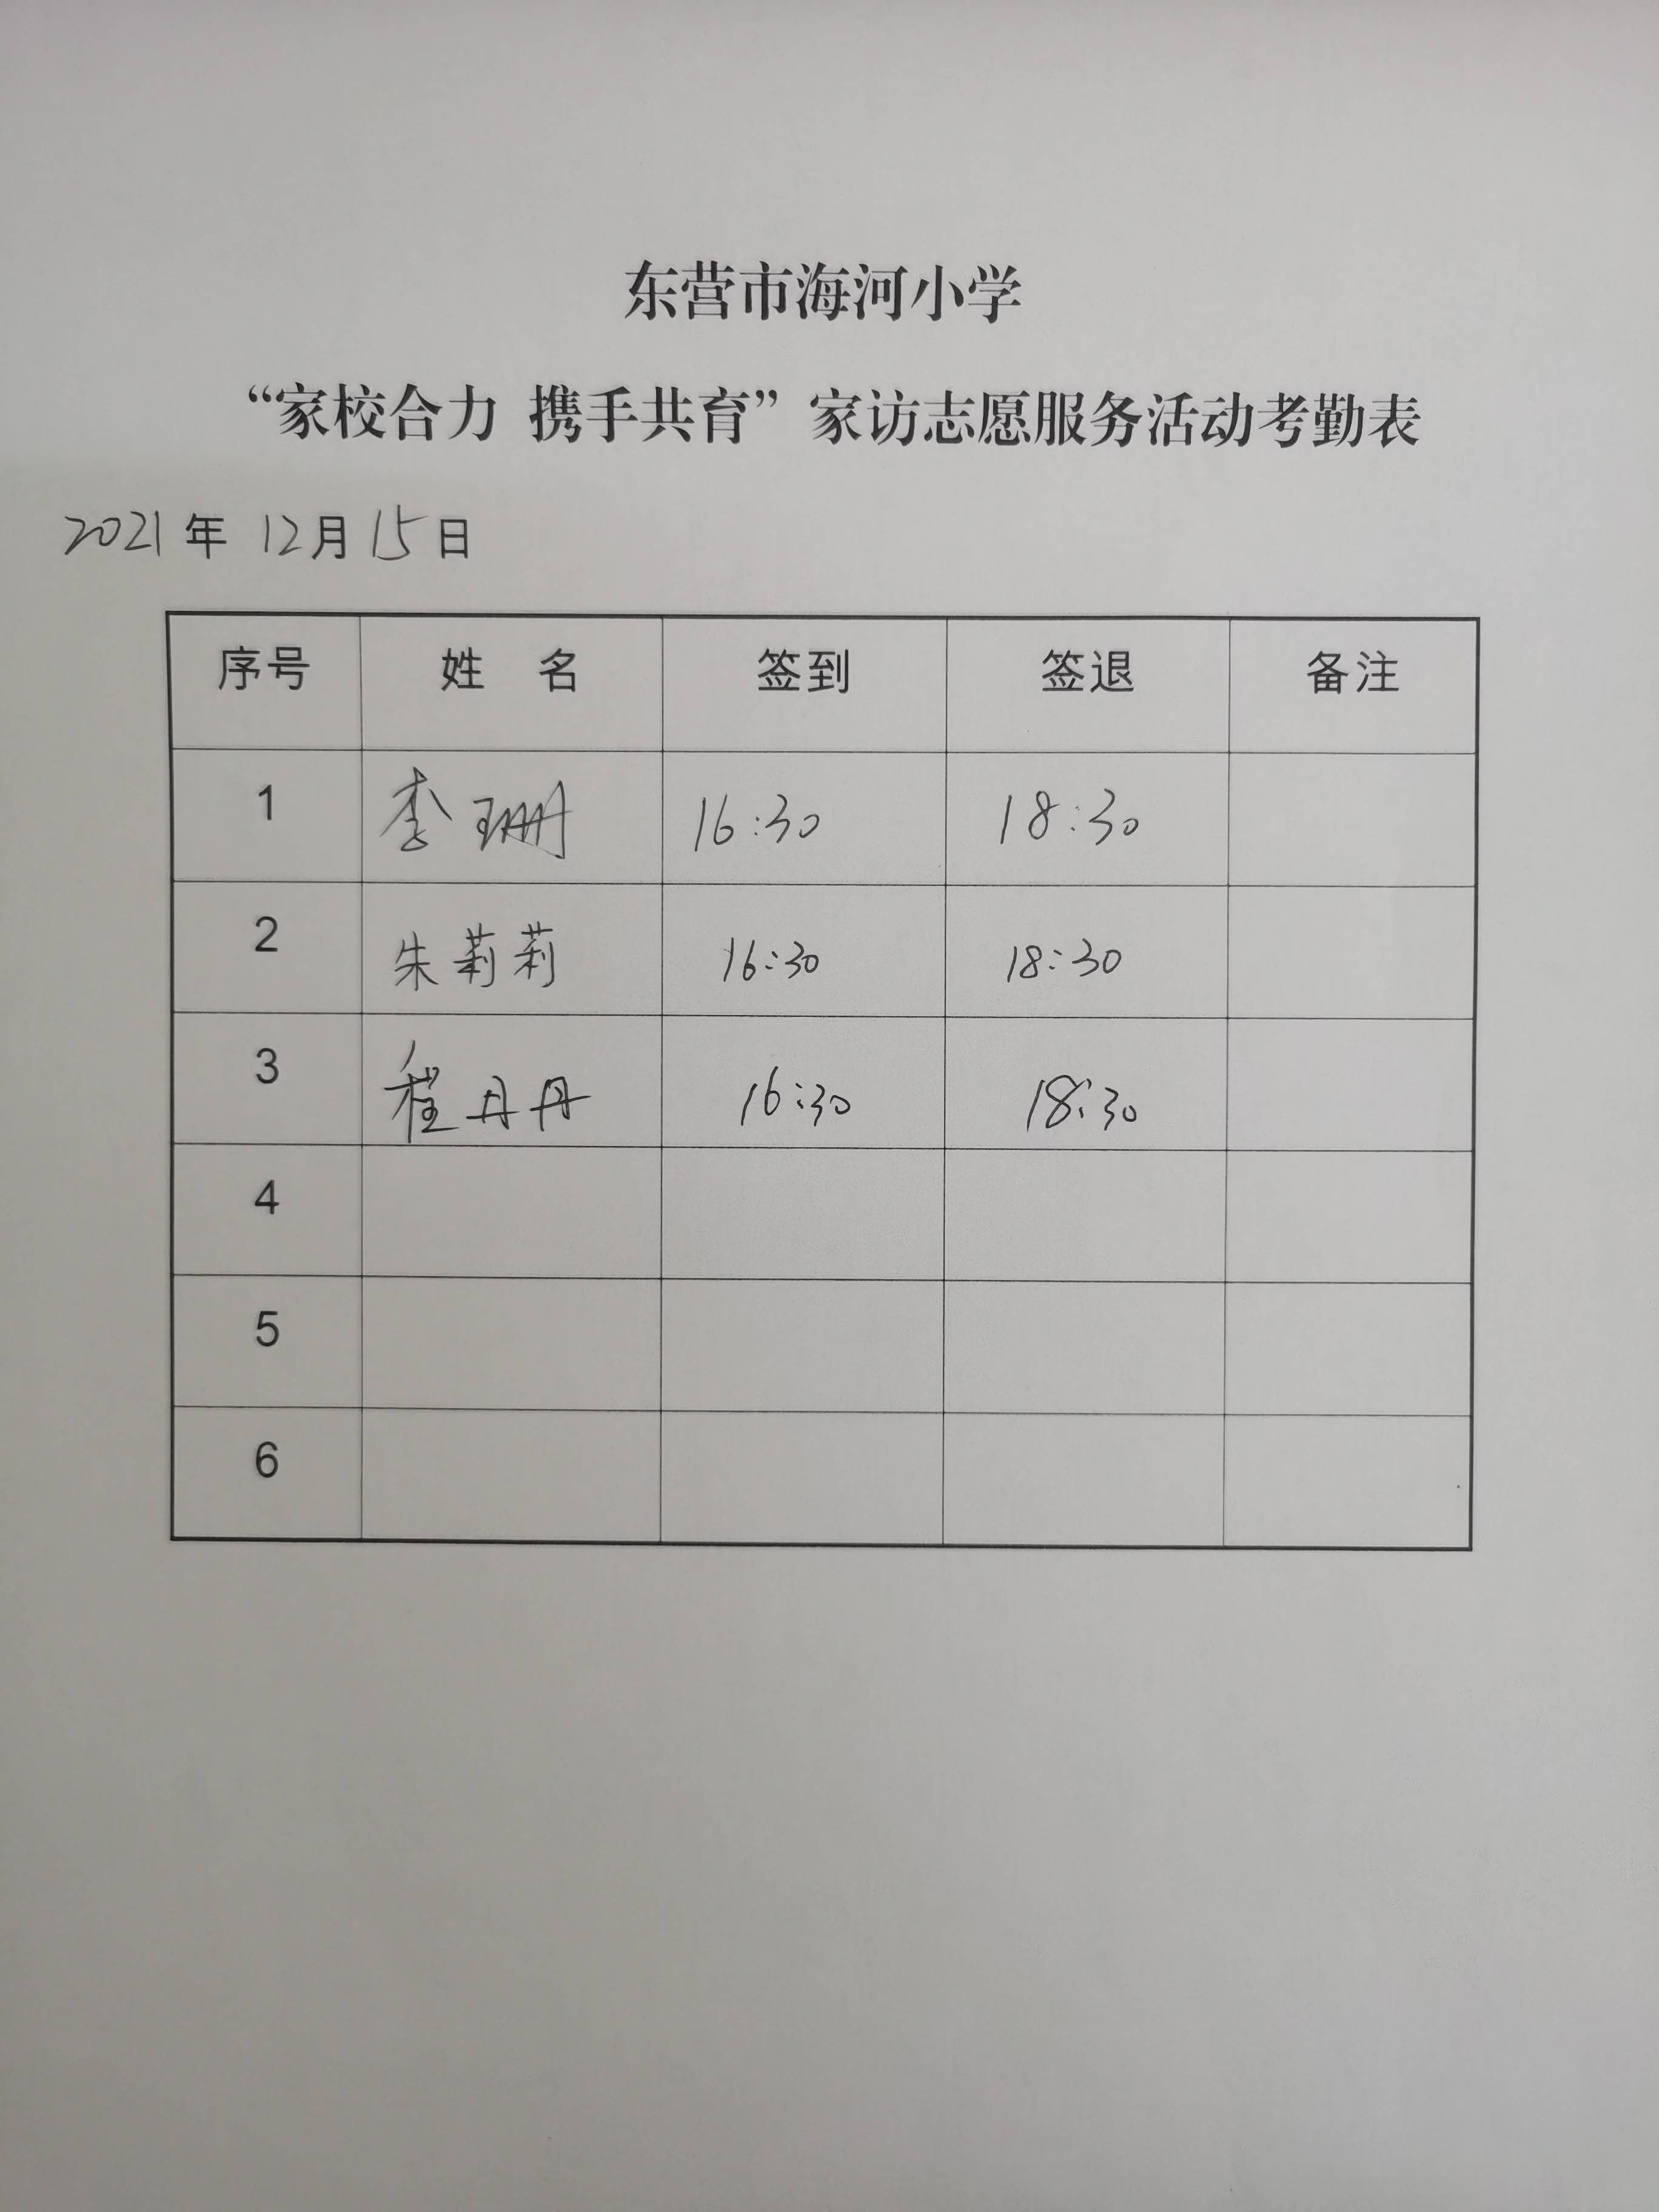 东营市海河小学
“家校合力 携手共育”家访志愿服务活动考勤表
2021年 12月15日
序号 姓 名 签到 签退 备注
1 李珊 16:30 18:30
2 朱莉莉 16:30 18:30
3 程丹丹 16:30 18:30
4
5
6